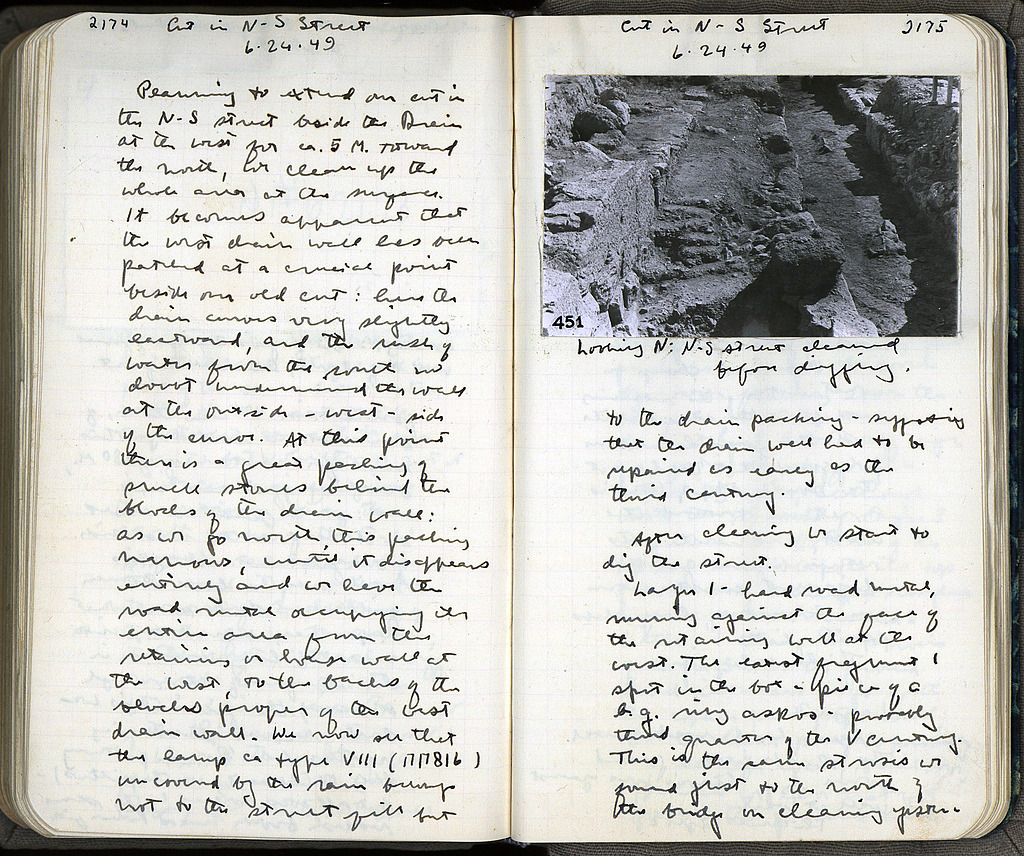 2174 Cut in N-S Street
6.24.49
Planning to extend our cut in
the N-S street beside the Drain
at the west for ca. 5 M. toward
the north, we clean up the
whole area at the surface.
It becomes apparent that
the west drain wall has been
patched at a crucial point
beside our old cut: here the
drain curves very slightly
eastward, and the rush of
water from the south no
doubt undermined the wall
at the outside - west - side
of the curve. At this point
there is a great packing of
small stones behind the
blocks of the drain wall:
as we go north this packing
narrows, until it disappears
entirely and we have the
road metal occupying the
entire area from the
retaining or house wall at
the west, to the backs of the
blocks proper of the west
drain wall. We now see that
the lamp ca type VIII (ΠΠ816)
uncovered by the rain belongs
not to the street fill but
Cut in N-S Street 2175
6.24.49
451
Looking N: N-S street cleaned
before digging.
to the drain packing - suggesting
that the drain wall had to be
repaired as early as the
third century.
After cleaning we start to
dig the street.
Layer 1 - hard road metal,
running against the face of
the retaining wall at the
west. The latest fragment I
spot in the box - piece of a
b.g. ring askos - probably
third quarter of the V century.
This is the same strosis we
found just to the north of
the bridge on cleaning yester-